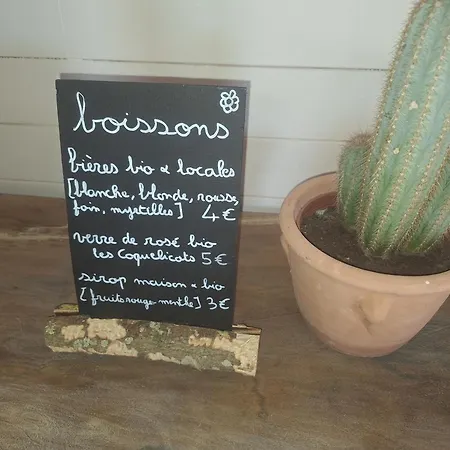 boissons
bières bio & locales
[blanche, blonde, rousse,
foin, myrtilles] 4€
verre de rosé bio
les Coquelicots 5€
sirop maison & bio
[fruits rouge-menthe] 3€